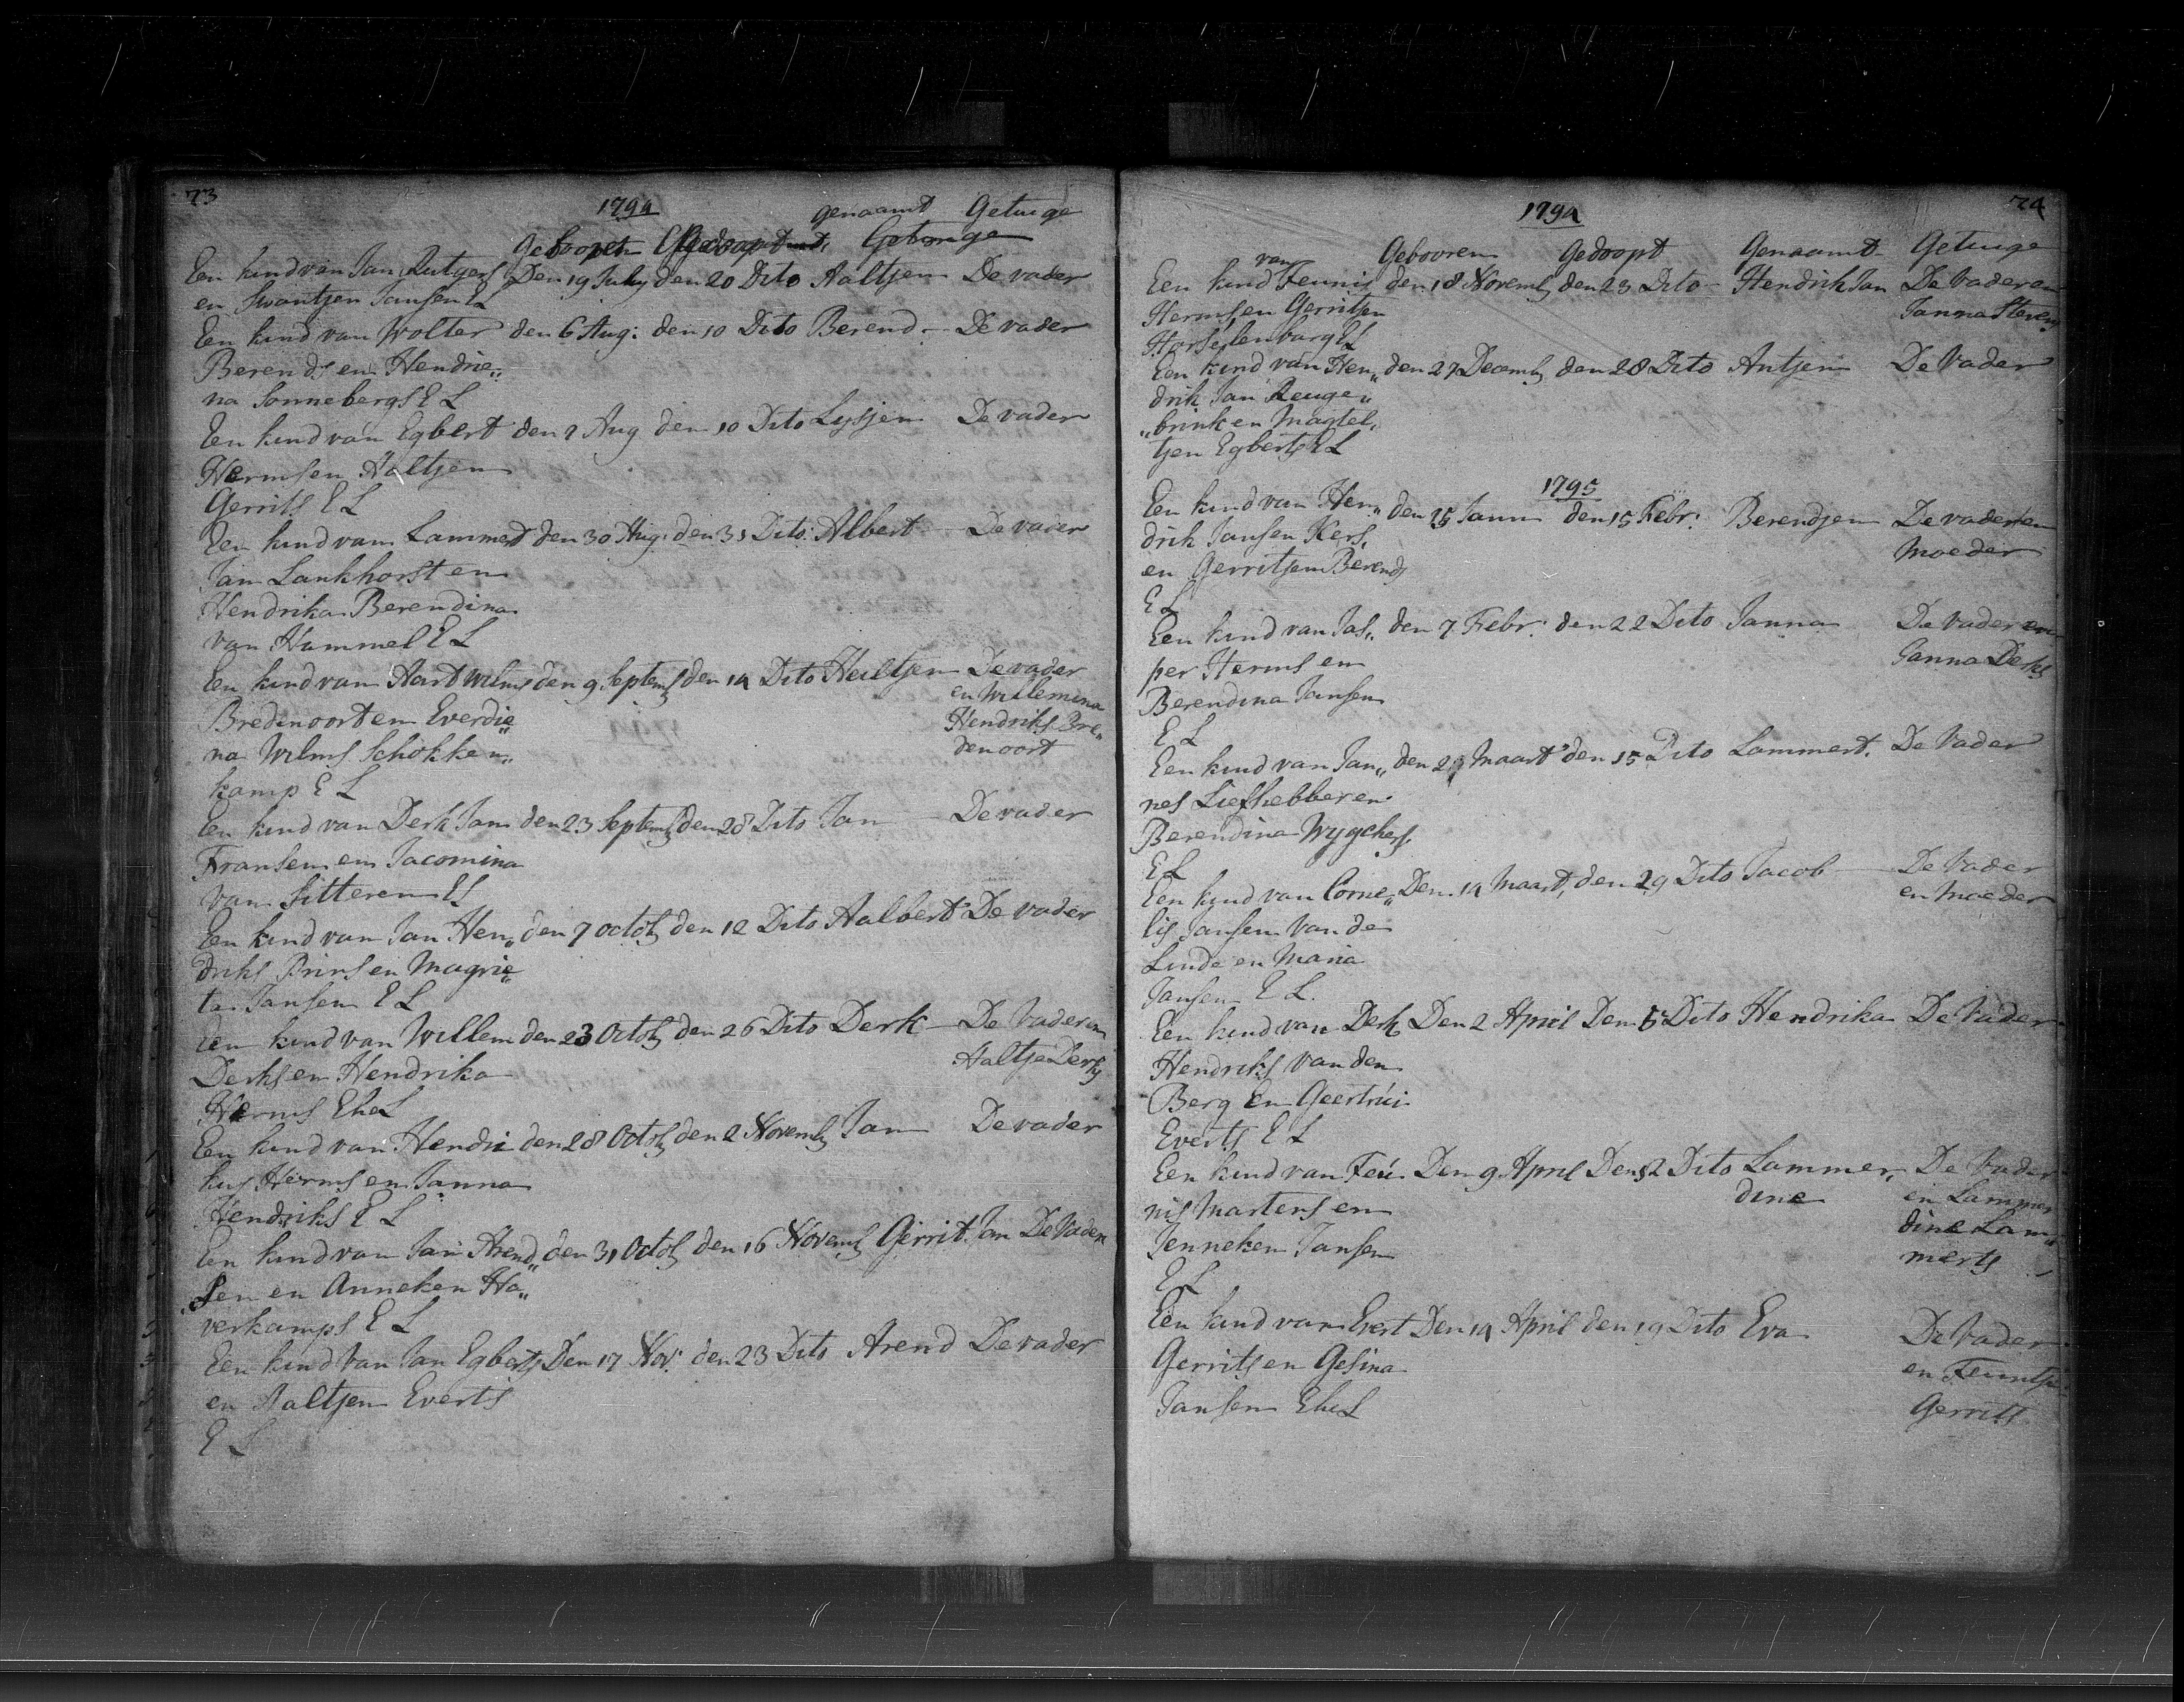 73
1794
genaamt Getuige
Gebooren Gedoopt Getuige
Een kind van Jan Rutgers Den 19 July den 20 Dito Aaltjen De vader
en Swantjen Jansen E L
Een kind van Wolter den 6 Aug: den 10 Dito Berend - De vader
Berends en Hendrie„
na Sonnebergs E L
Een kind van Egbert den 9 Aug den 10 Dito Lysjen De vader
Hermsen Aaltjen
Gerrits E L
Een kind van Lammert den 30 Aug: den 31 Dito: Albert De vader
Jan Lankhorst en
Hendrika Berendina
van Hammel E L
Een kind van Aart Wilms den 9 Septemb den 14 Dito Heiltjen De vader
en Willemina
Bredenoort en Everdie„
Hendriks Bre„
na Wilms Schokken„
denoort
kamp E L
Een kind van Derk Jan den 23 Septemb den 28 Dito Jan De vader
Fransen en Jacomina
van Sitteren E L
Een kind van Jan Hen„ den 7 Octob den 12 Dito Aalbert De vader
driks Prins en Magrie„
ta Jansen E L
Een kind van Willem den 23 Octob den 26 Dito Derk - De Vader en
Derks en Hendrika
Aaltje Derks
Herms Ehe L
Een kind van Hendri den 28 Octob den 2 Novemb Jan De vader
kus Herms en Janna
Hendriks E L
Een kind van Jan Arend„ den 31 Octob den 16 Novemb Gerrit Jan De Vader
sen en Anneken Ha„
verkamps E L
Een kind Van Jan Egberts Den 17 Nov: den 23 Dito Arend De vader
en Aaltjen Everts
E L
74
1794
Gebooren Gedoopt Genaamt Getuige
van
Een kind Teunis den 18 Novemb den 23 Dito - Hendrik Jan De Vader en
Hermsen Gerritjen
Janna Stevens
Horselenburg E L
Een kind van Hen„ den 27 Decemb den 28 Dito Antjen De Vader
drik Jan Reuge„
„brink en Magtel„
tjen Egberts E L
1795
Een kind van Hen„ den 25 Jann den 15 Febr: Berendjen De vader en
drik Jansen Kers,
Moeder
en Gerritjen Berends
E L
Een kind van Jas„ den 7 Febr: den 22 Dito Janna De Vader en
per Herms en
Janna Derks
Berendina Jansen
E L
Een kind van Jan„ den Maart den 15 Dito Lammert. De Vader
nes Liefhebber en
Berendina Wygchers
E L
Een kind van Corne„ Den 14 Maart, den 29 Dito Jacob De Vader
en Moeder
lis Jansen Van de
Linde en Maria
Jansen E L.
Een kind van Derk Den 2 April Den 5 Dito Hendrika De Vader
Hendriks Van den
Berg En Geertrúi
Everts E L
Een kind van Teú Den 9 April Den 12 Dito Lammer„ De Vader
dine
en Lammer
nis Martens en
dine Lam„
Jenneken Jansen
merts
E L
Een kind van Evert Den 14 April den 19 Dito Eva De Vader
Gerrits en Gesina
en Teuntje
Jansen Ehe L
Gerrits